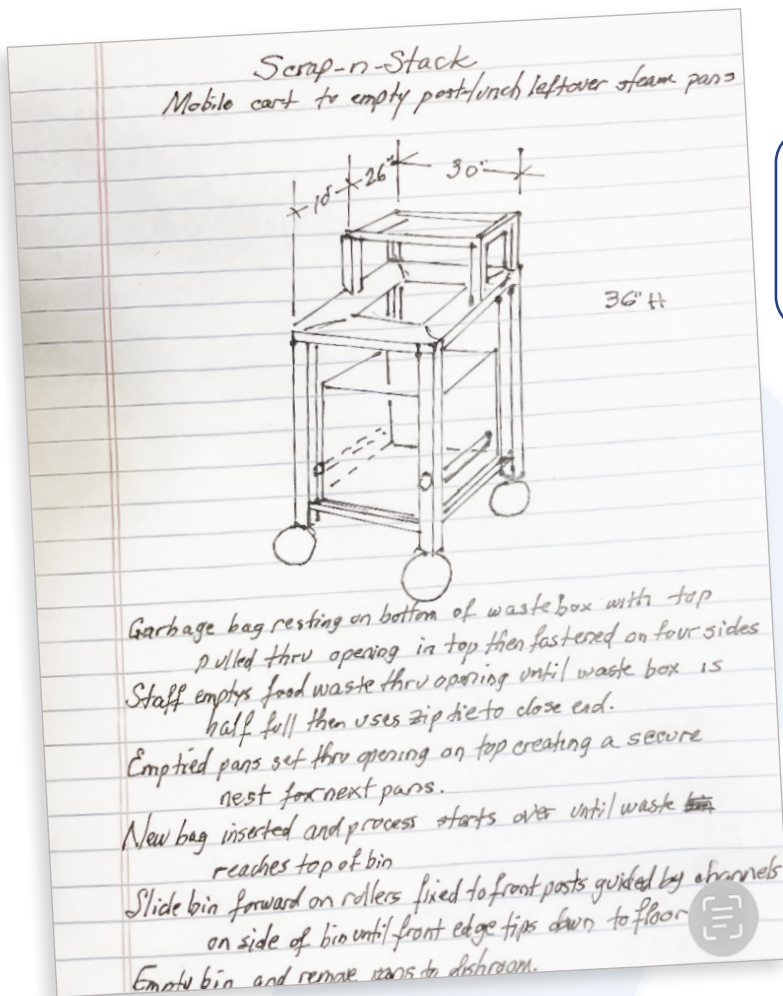 Scrap-n-Stack
Mobile cart to empty post-lunch leftover steam pans
10" 26" 30"
36" H
Garbage bag resting on bottom of waste box with top
pulled thru opening in top then fastened on four sides
Staff emptys food waste thru opening until waste box is
half full then uses zip tie to close end.
Emptied pans set thru opening on top creating a secure
nest for next pans.
New bag inserted and process starts over until waste
reaches top of bin
Slide bin forward on rollers fixed to front posts guided by channels
on side of bin until front edge tips down to floor
Empty bin and remove pans to dishroom.